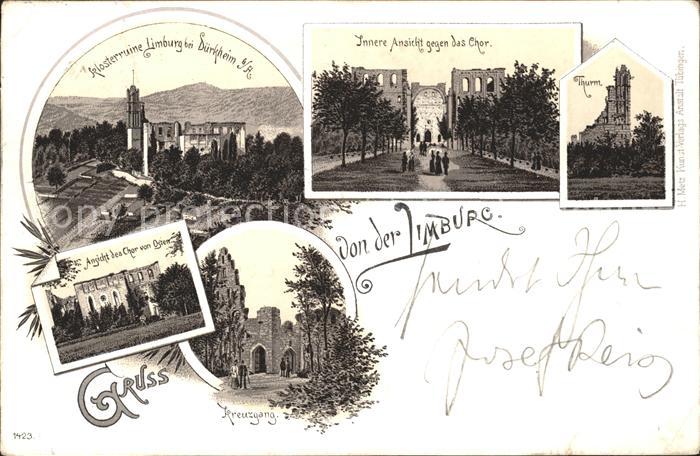 Klosterruine Limburg bei Dürkheim a/H
Innere Ansicht gegen das Chor.
Thurm.
H. Metz Kunst-Verlags Anstalt Tübingen.
copyright postcard copyright postcard
Ansicht des Chor von Osten
GRUSS
von der LIMBURG.
Kreuzgang.
Josef
1423.